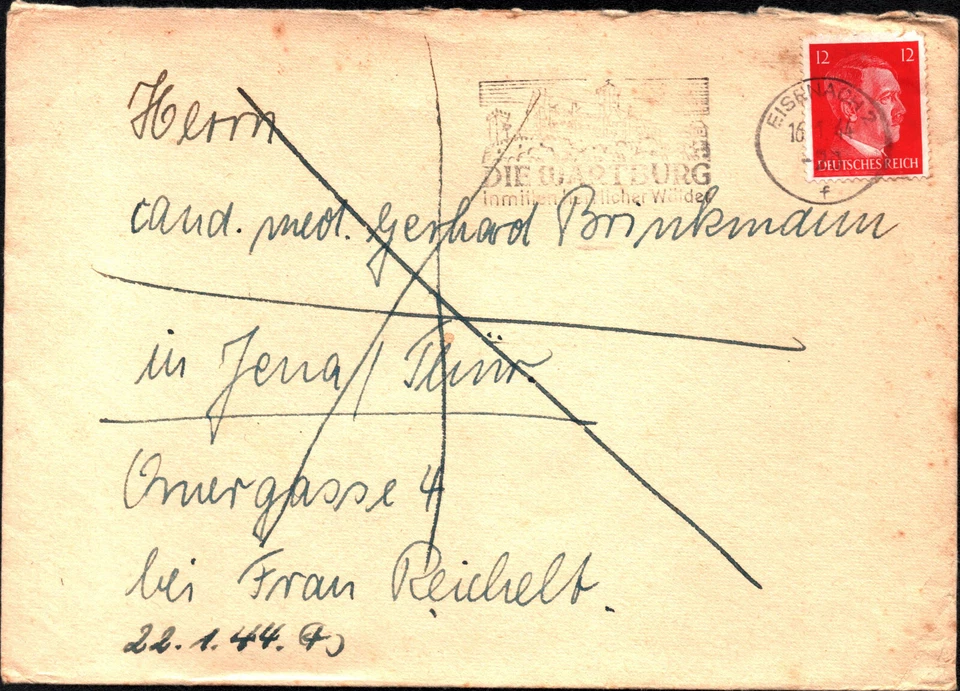 12 12
DEUTSCHES REICH
EISENACH
16.1.44
f
DIE WARTBURG
inmitten herrlicher Wälder
Herrn
cand. med. Gerhard Brinkmann
in Jena / Thür.
gasse 4
bei Frau Reichelt.
22.1.44.